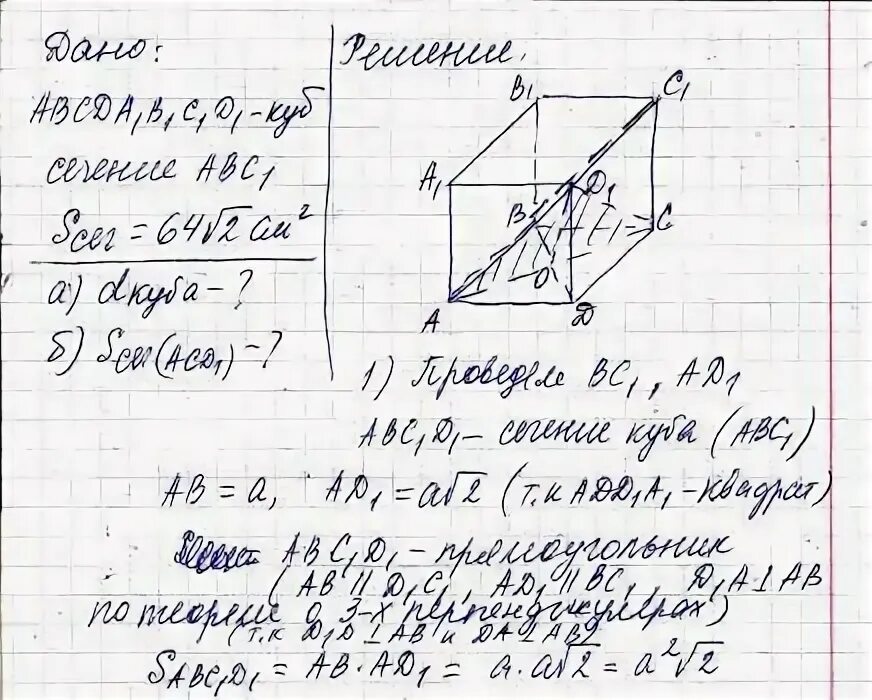 Дано:
ABCDA₁B₁C₁D₁ - куб
сечение ABC₁
Sсег = 64√2 см²
а) dкуба - ?
б) Sсег(ACD₁) - ?
Решение.
B₁ C₁
A₁ D₁
B C
O
A D
1) Проведем BC₁, AD₁
ABC₁D₁ - сечение куба (ABC₁)
AB = a, AD₁ = a√2 (т.к ADD₁A₁ - квадрат)
ABC₁D₁ - прямоугольник
(AB || D₁C₁, AD₁ || BC₁, D₁A ⊥ AB
по теореме о 3-х перпендикулярах)
(т.к D₁D ⊥ AB и DA ⊥ AB)
SABC₁D₁ = AB · AD₁ = a · a√2 = a²√2